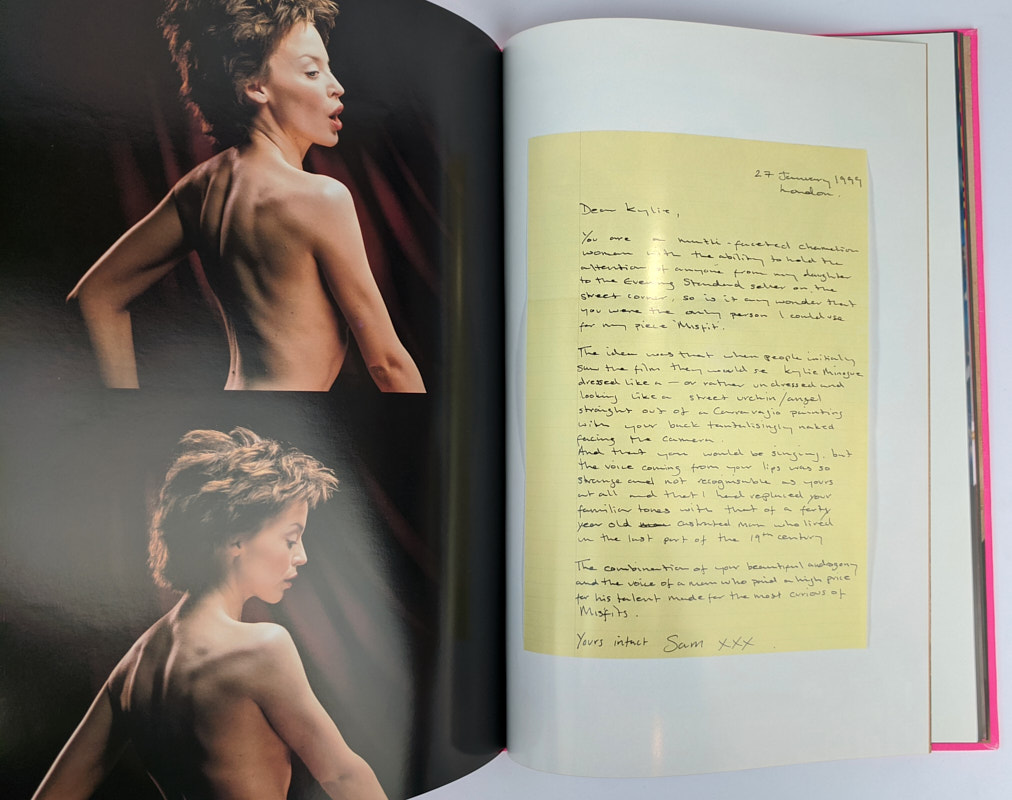 27 January 1999
London.
Dear Kylie,
You are a multi-faceted chamelion
woman with the ability to hold the
attention of anyone from my daughter
to the Evening Standard seller on the
street corner, so is it any wonder that
you were the only person I could use
for my piece 'Misfit'.
The idea was that when people initially
saw the film they would se Kylie Minogue
dressed like a – or rather undressed and
looking like a street urchin/angel
straight out of a Carravagio painting
with your back tantalisingly naked
facing the camera.
And that you would be singing, but
the voice coming from your lips was so
strange and not recognisable as yours
at all and that I had replaced your
familiar tones with that of a forty
year old castrated man who lived
in the last part of the 19th century
The combination of your beautiful androgony
and the voice of a man who paid a high price
for his talent made for the most curious of
Misfits.
Yours intact Sam xxx